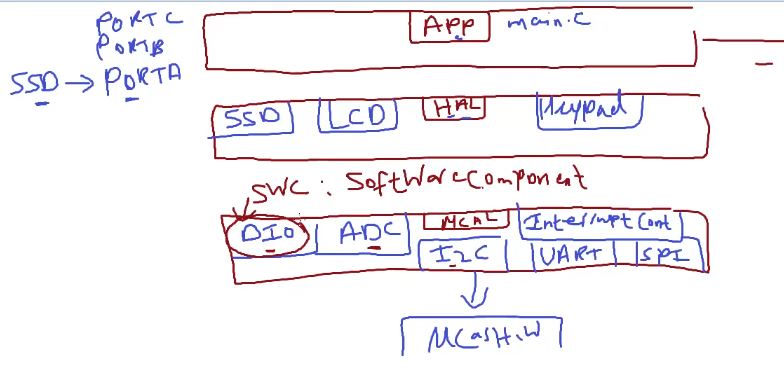 PORTC
PORTB
SSD → PORTA
App main.c
SSD LCD HAL Keypad
SWC : SoftWareComponent
DIO ADC MCAL Interrupt Cont
I2C UART SPI
MC as H.W